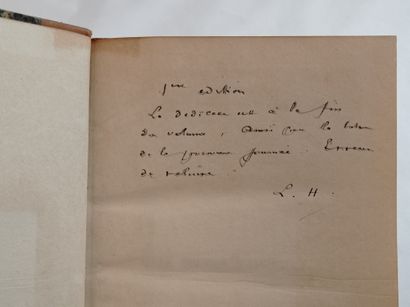 1ere edition
La dedicace est à la fin
du volume, ainsi que la table
de la premiere journée. Erreur
de reliure.
L. H.